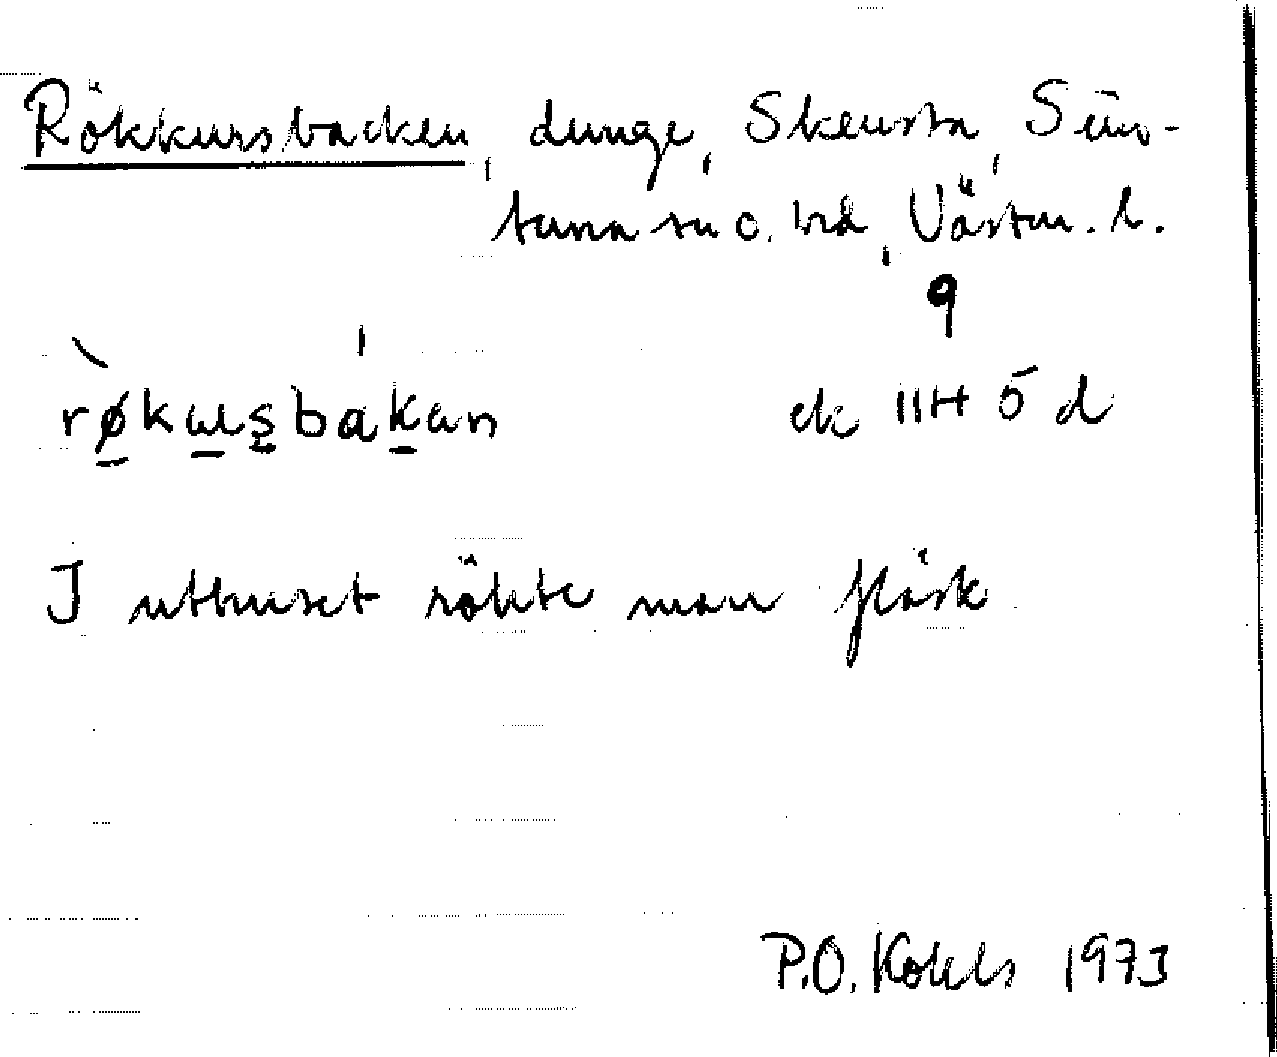 Rökkursbacken, dunge, Skensta, Sim-
tuna sn o. hd, Västm. l.
9
røkusbakan ek 11H 5 d
I uthuset rökte man fläsk
P.O. Kohls 1973